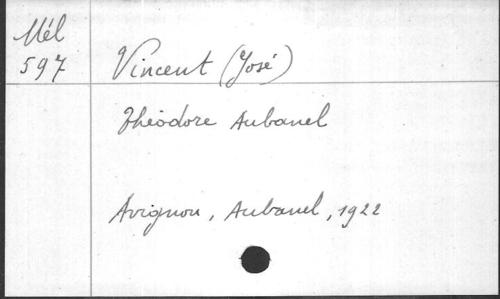 Mél
597
Vincent (José)
Théodore Aubanel
Avignon, Aubanel, 1922